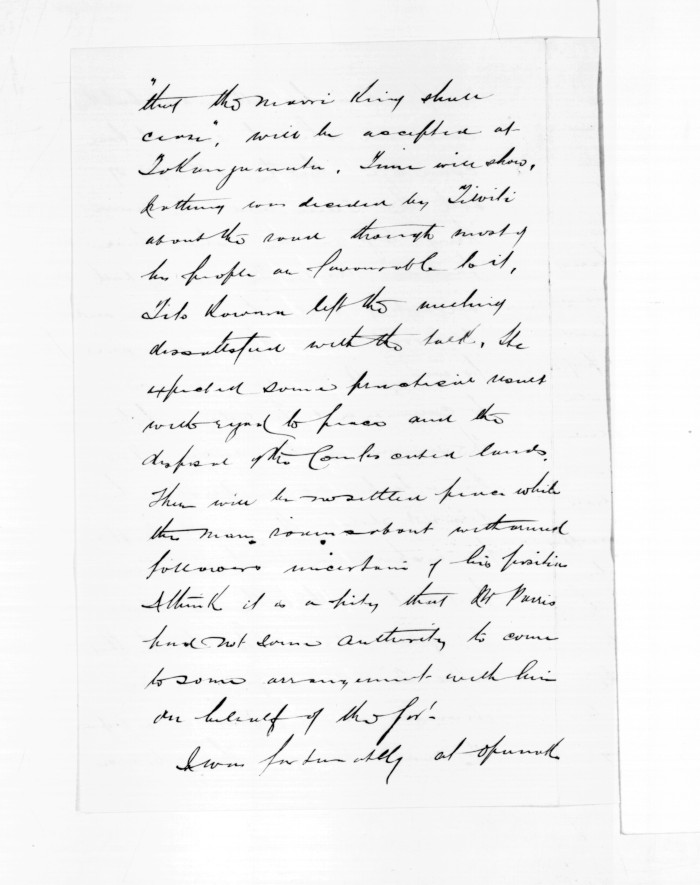 "that the Maori King shall
cease", will be accepted at
Tokangamutu. Time will show.
Nothing was decided by Tiwiti
about the road though most of
his people are favourable to it.
Tito Kowaru left the meeting
dissatisfied with the talk. He
expected some practical result
with regard to peace and the
disposal of the Confiscated lands.
There will be no settled peace while
this man roams about with armed
followers uncertain of his position
I think it is a pity that Mr Parris
had not some authority to come
to some arrangement with him
on behalf of the Govt.
I was fortunately at Opunake